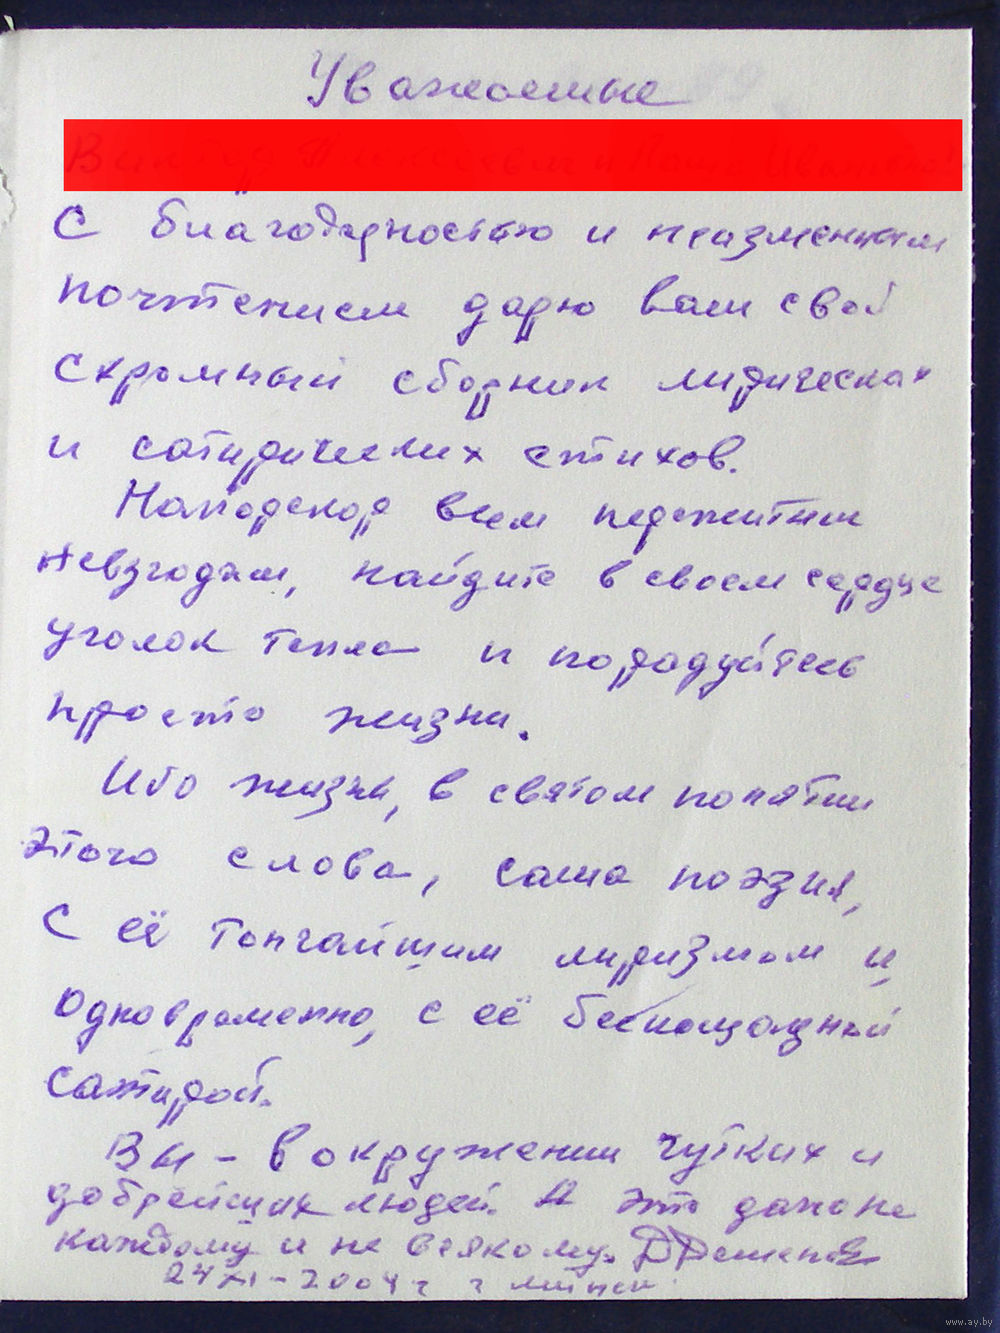 Уважаемые
С благодарностью и неизменным
почтением дарю вам свой
скромный сборник лирических
и сатирических стихов.
Наперекор всем пережитым
невзгодам, найдите в своем сердце
уголок тепла и порадуйтесь
просто жизни.
Ибо жизнь, в святом понятии
этого слова, сама поэзия,
с её тончайшим лиризмом и
одновременно, с её беспощадной
сатирой.
Вы – в окружении чутких и
добрейших людей. А это дано не
каждому и не всякому.
24 XI – 2004 г г
www.ay.by